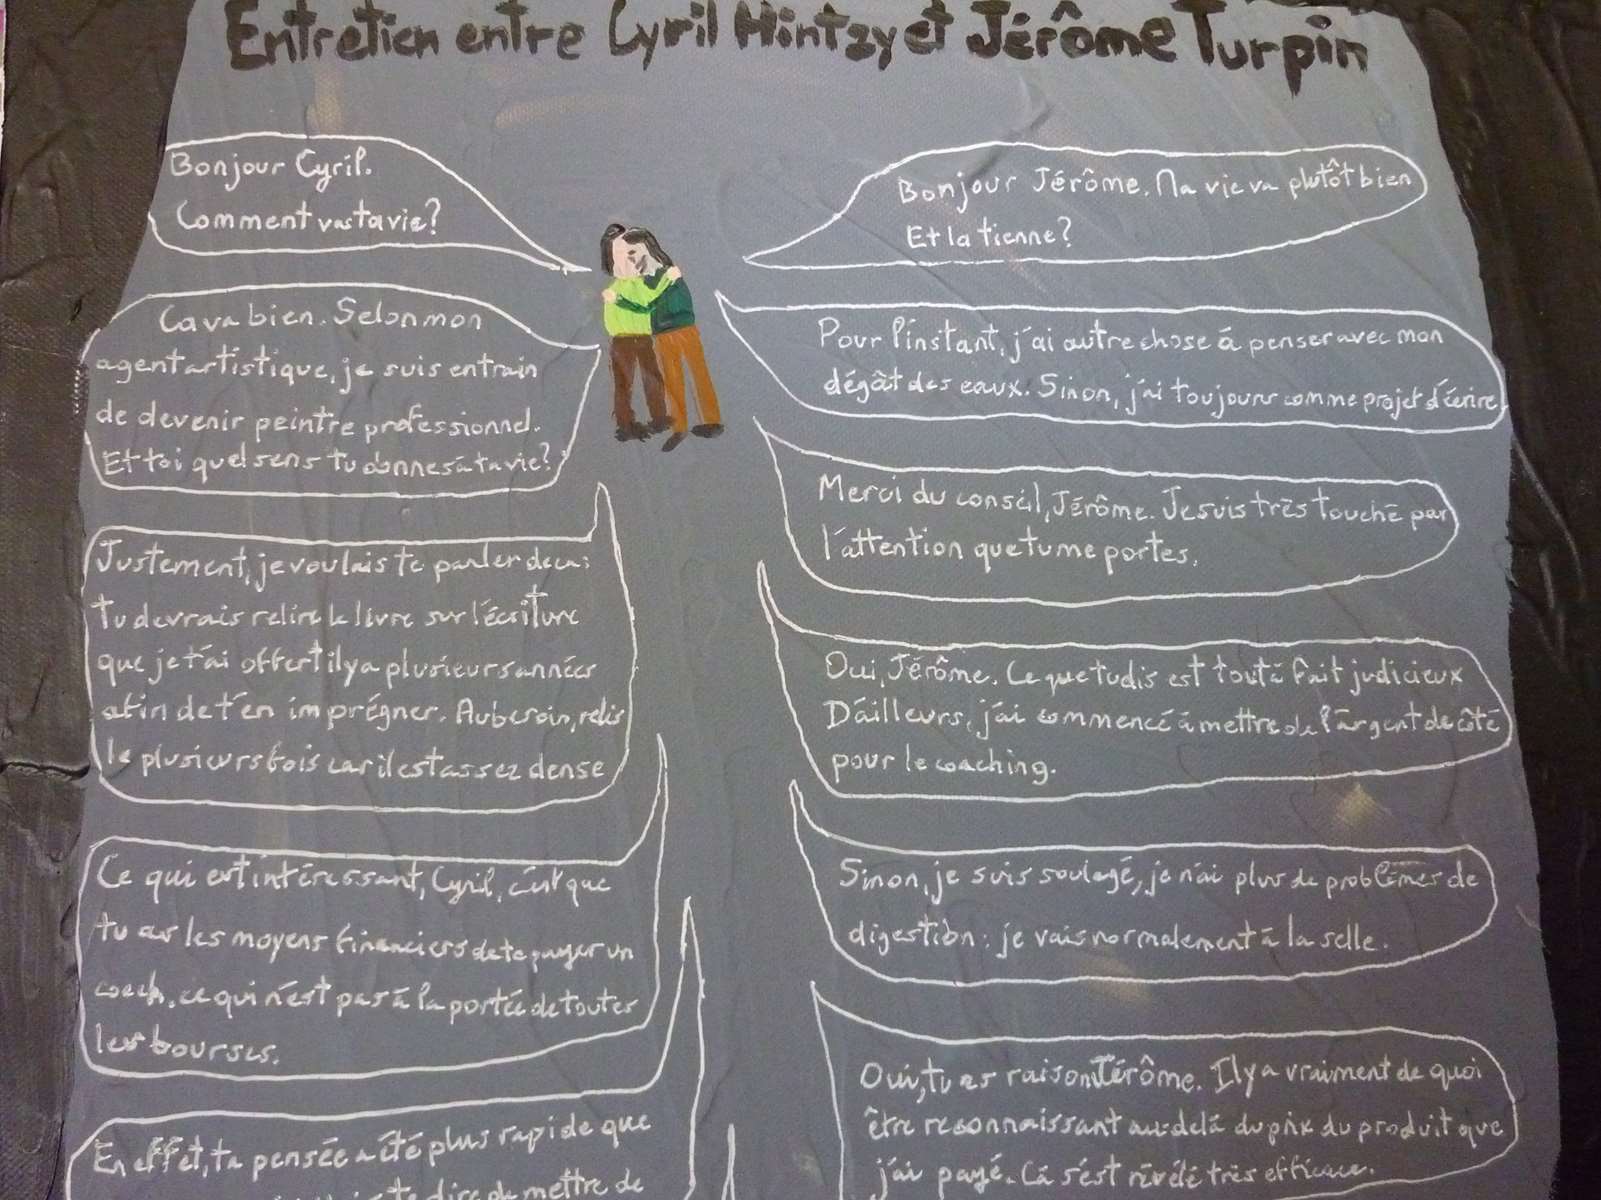 Entretien entre Cyril Hintzy et Jérôme Turpin
Bonjour Cyril.
Comment vas ta vie?
Bonjour Jérôme. Ma vie va plutôt bien
Et la tienne?
Ca va bien. Selon mon
agent artistique, je suis entrain
de devenir peintre professionnel.
Et toi quel sens tu donnes à ta vie?
Pour l'instant, j'ai autre chose à penser avec mon
dégât des eaux. Sinon, j'ai toujours comme projet d'écrire
Justement, je voulais te parler de ca:
tu devrais relire le livre sur l'écriture
que je t'ai offert il y a plusieurs années
afin de t'en imprégner. Au besoin, relis
le plusieurs fois car il est assez dense
Merci du conseil, Jérôme. Je suis très touché par
l'attention que tu me portes.
Ce qui est intéressant, Cyril, c'est que
tu as les moyens financiers de te payer un
coach, ce qui n'est pas à la portée de toutes
les bourses.
Oui, Jérôme. Ce que tu dis est tout à fait judicieux
D'ailleurs, j'ai commencé à mettre de l'argent de côté
pour le coaching.
En effet, ta pensée a été plus rapide que
te dire de mettre de
Sinon, je suis soulagé, je n'ai plus de problèmes de
digestion: je vais normalement à la selle.
Oui, tu as raison Jérôme. Il y a vraiment de quoi
être reconnaissant au-delà du prix du produit que
j'ai payé. Cà s'est révélé très efficace.